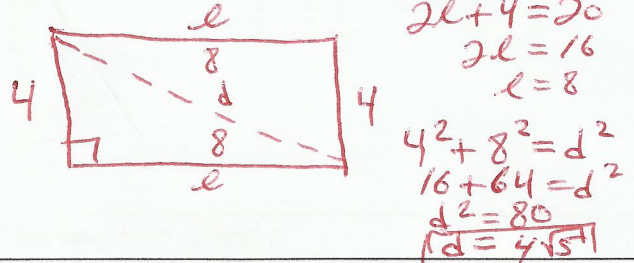 l
8
4
d
4
8
l
2l+4=20
2l=16
l=8
4²+8²=d²
16+64=d²
d²=80
d=4√5